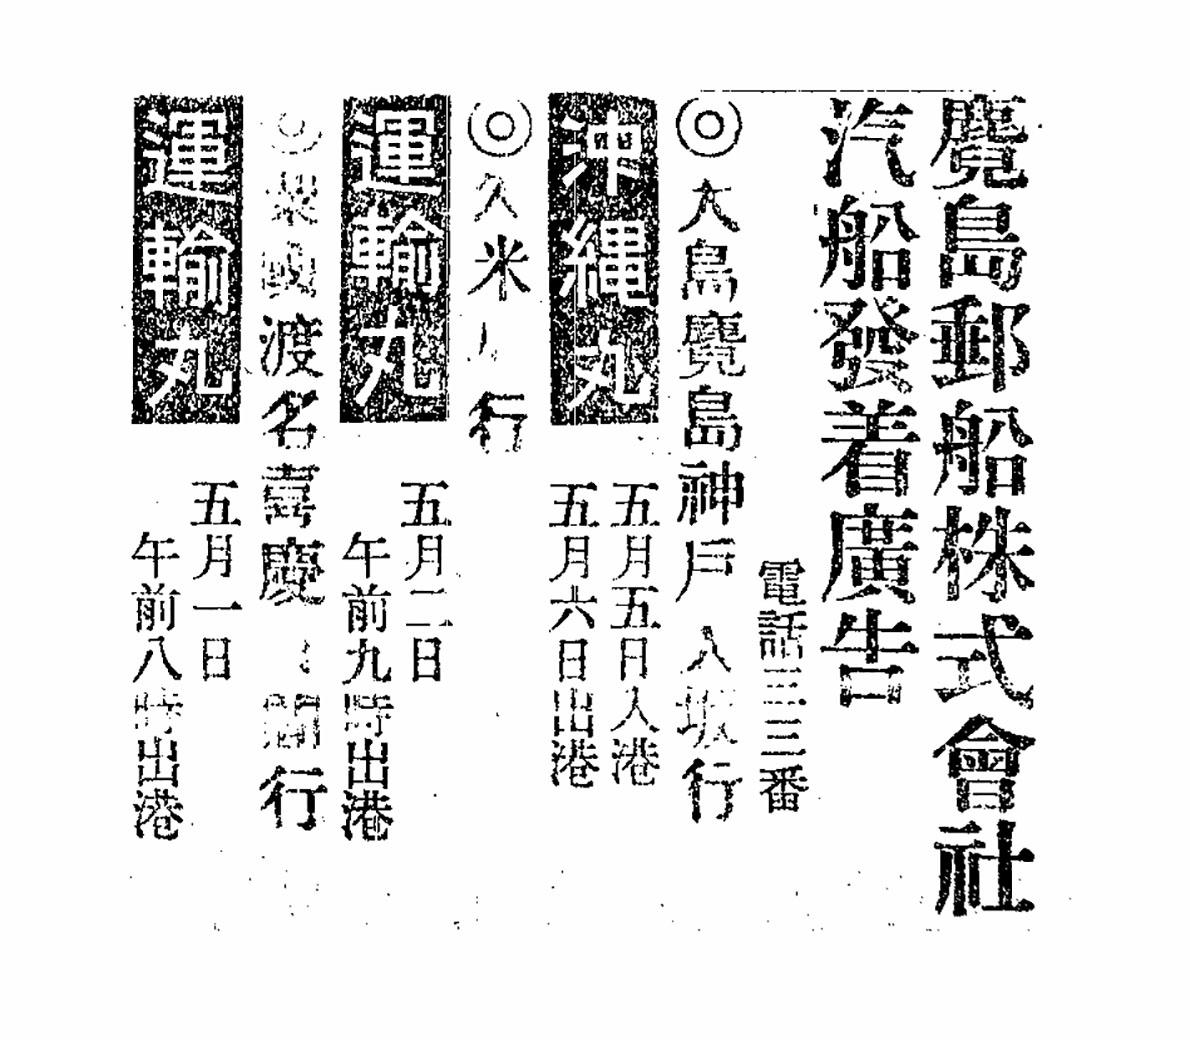 麑島郵船株式會社
汽船發着廣告
電話三三番
◎大島麑島神戸大坂行
沖縄丸
五月五日入港
五月六日出港
◎久米島行
運輸丸
五月二日
午前九時出港
◎粟國渡名喜慶間行
運輸丸
五月一日
午前八時出港